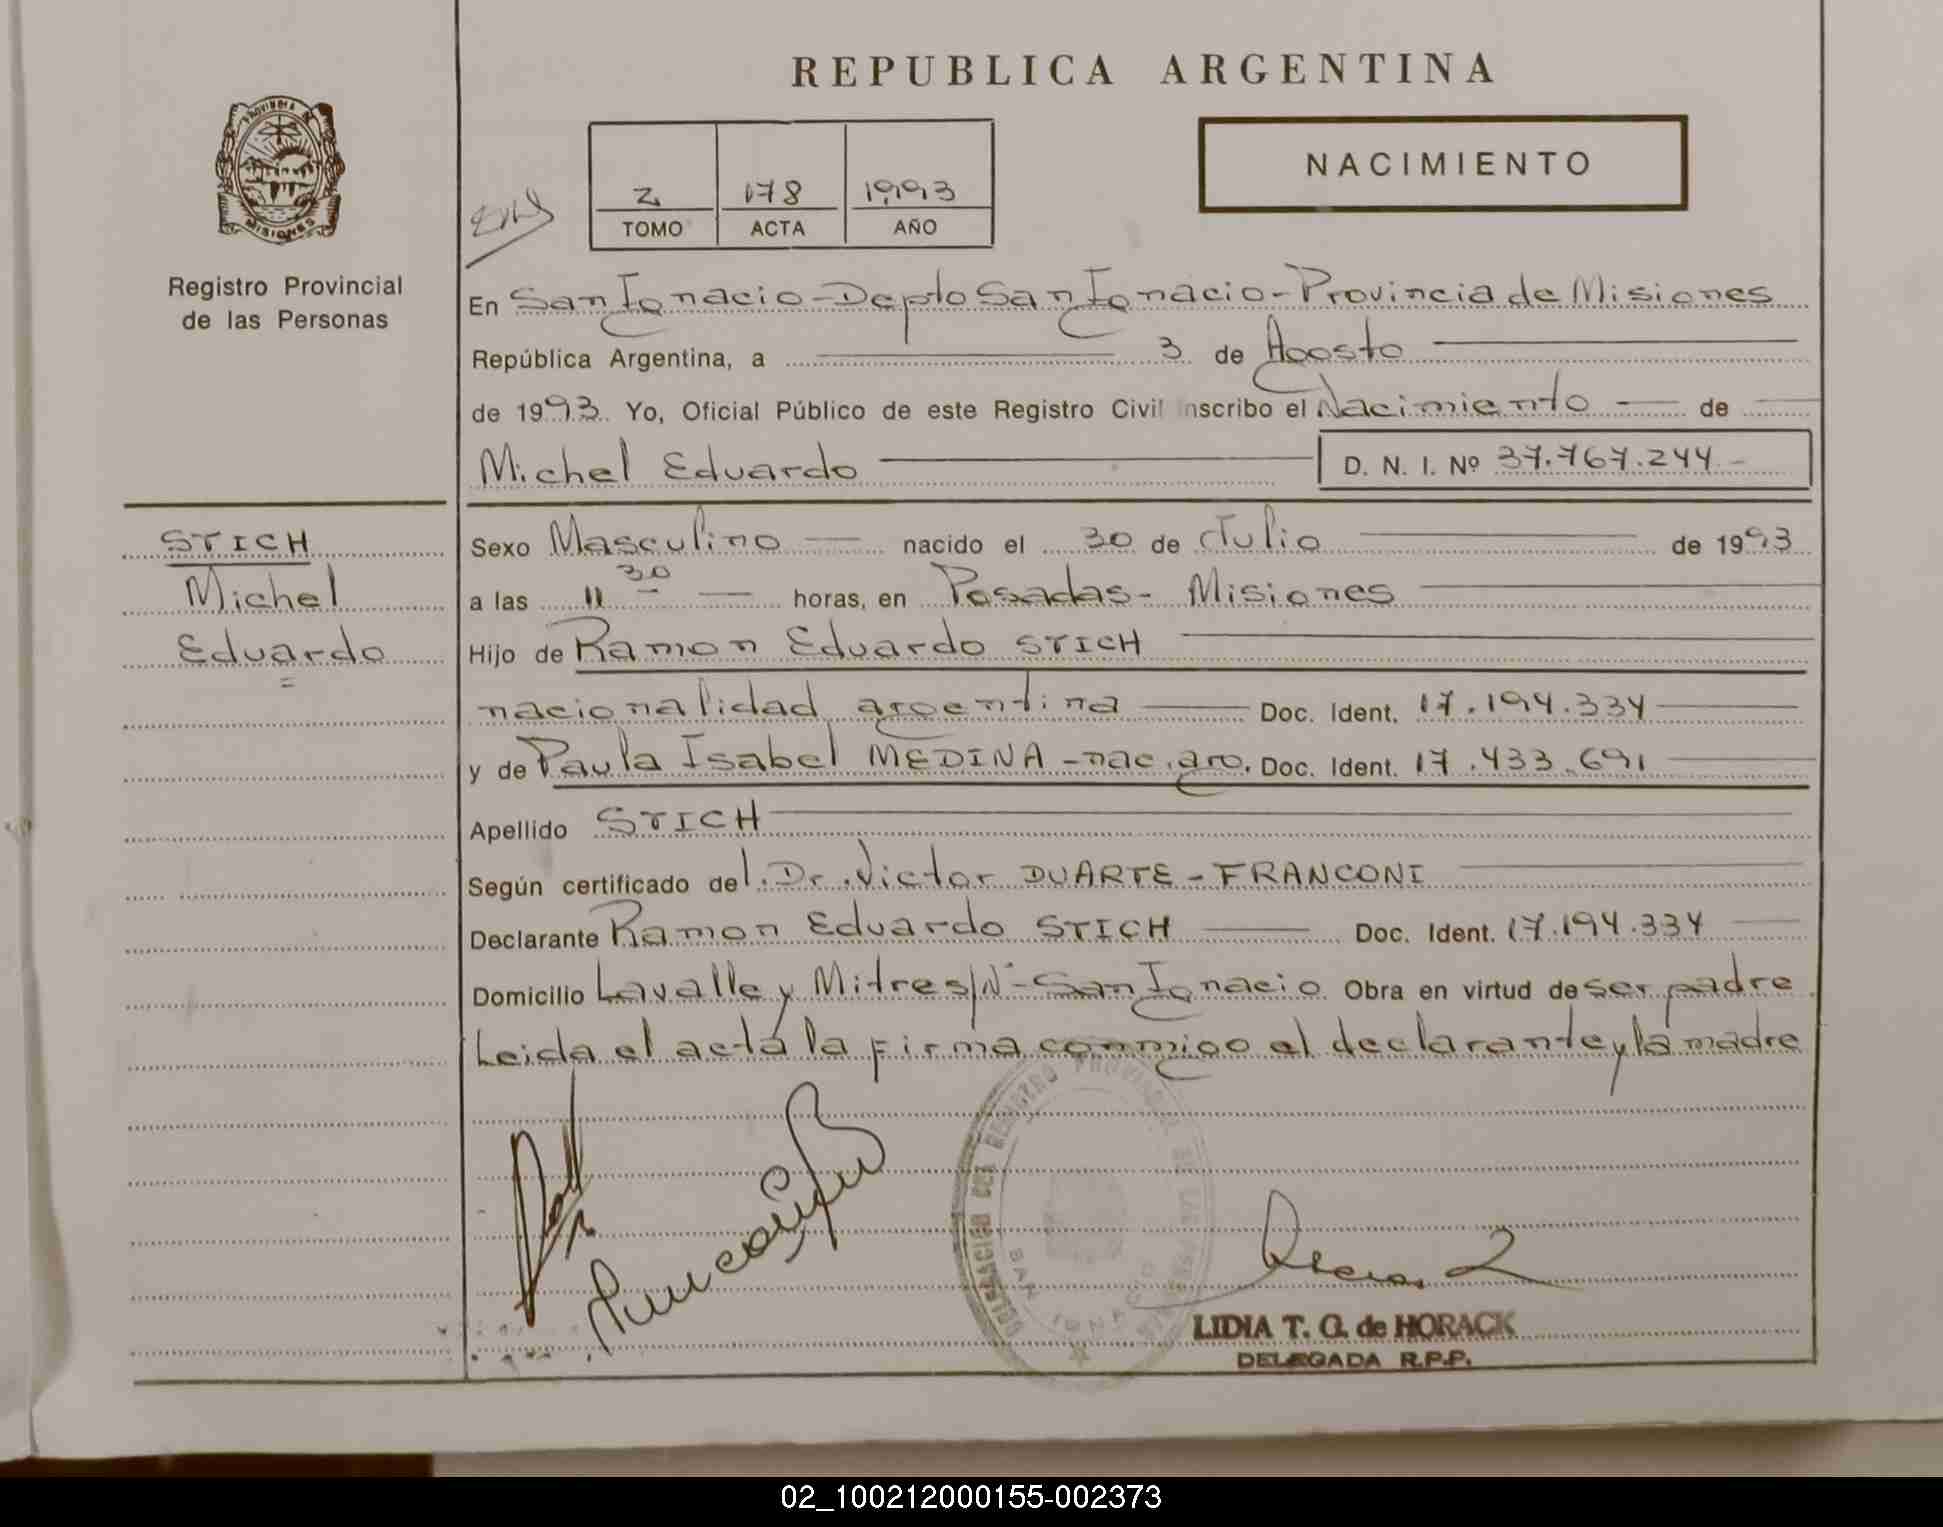 REPUBLICA ARGENTINA
PROVINCIA
MISIONES
Registro Provincial
de las Personas
2 178 1993
TOMO ACTA AÑO
NACIMIENTO
En San Ignacio - Depto San Ignacio - Provincia de Misiones
República Argentina, a 3 de Agosto
de 1993. Yo, Oficial Público de este Registro Civil inscribo el Nacimiento de
Michel Eduardo D. N. I. Nº 37.767.244 -
STICH
Michel
Eduardo
Sexo Masculino nacido el 30 de Julio de 1993
a las 11 30 horas, en Posadas - Misiones
Hijo de Ramon Eduardo STICH
nacionalidad argentina Doc. Ident. 17.194.334
y de Paula Isabel MEDINA - nac. arg. Doc. Ident. 17.433.691
Apellido STICH
Según certificado del Dr. Victor DUARTE - FRANCONI
Declarante Ramon Eduardo STICH Doc. Ident. 17.194.334
Domicilio Lavalle y Mitre s/Nº - San Ignacio Obra en virtud de ser padre
Leida el acta la firma conmigo el declarante y la madre
DELEGACION DEL REGISTRO PROVINCIAL DE LAS PERSONAS
SAN IGNACIO
LIDIA T. G. de HORACK
DELEGADA R.P.P.
02_100212000155-002373